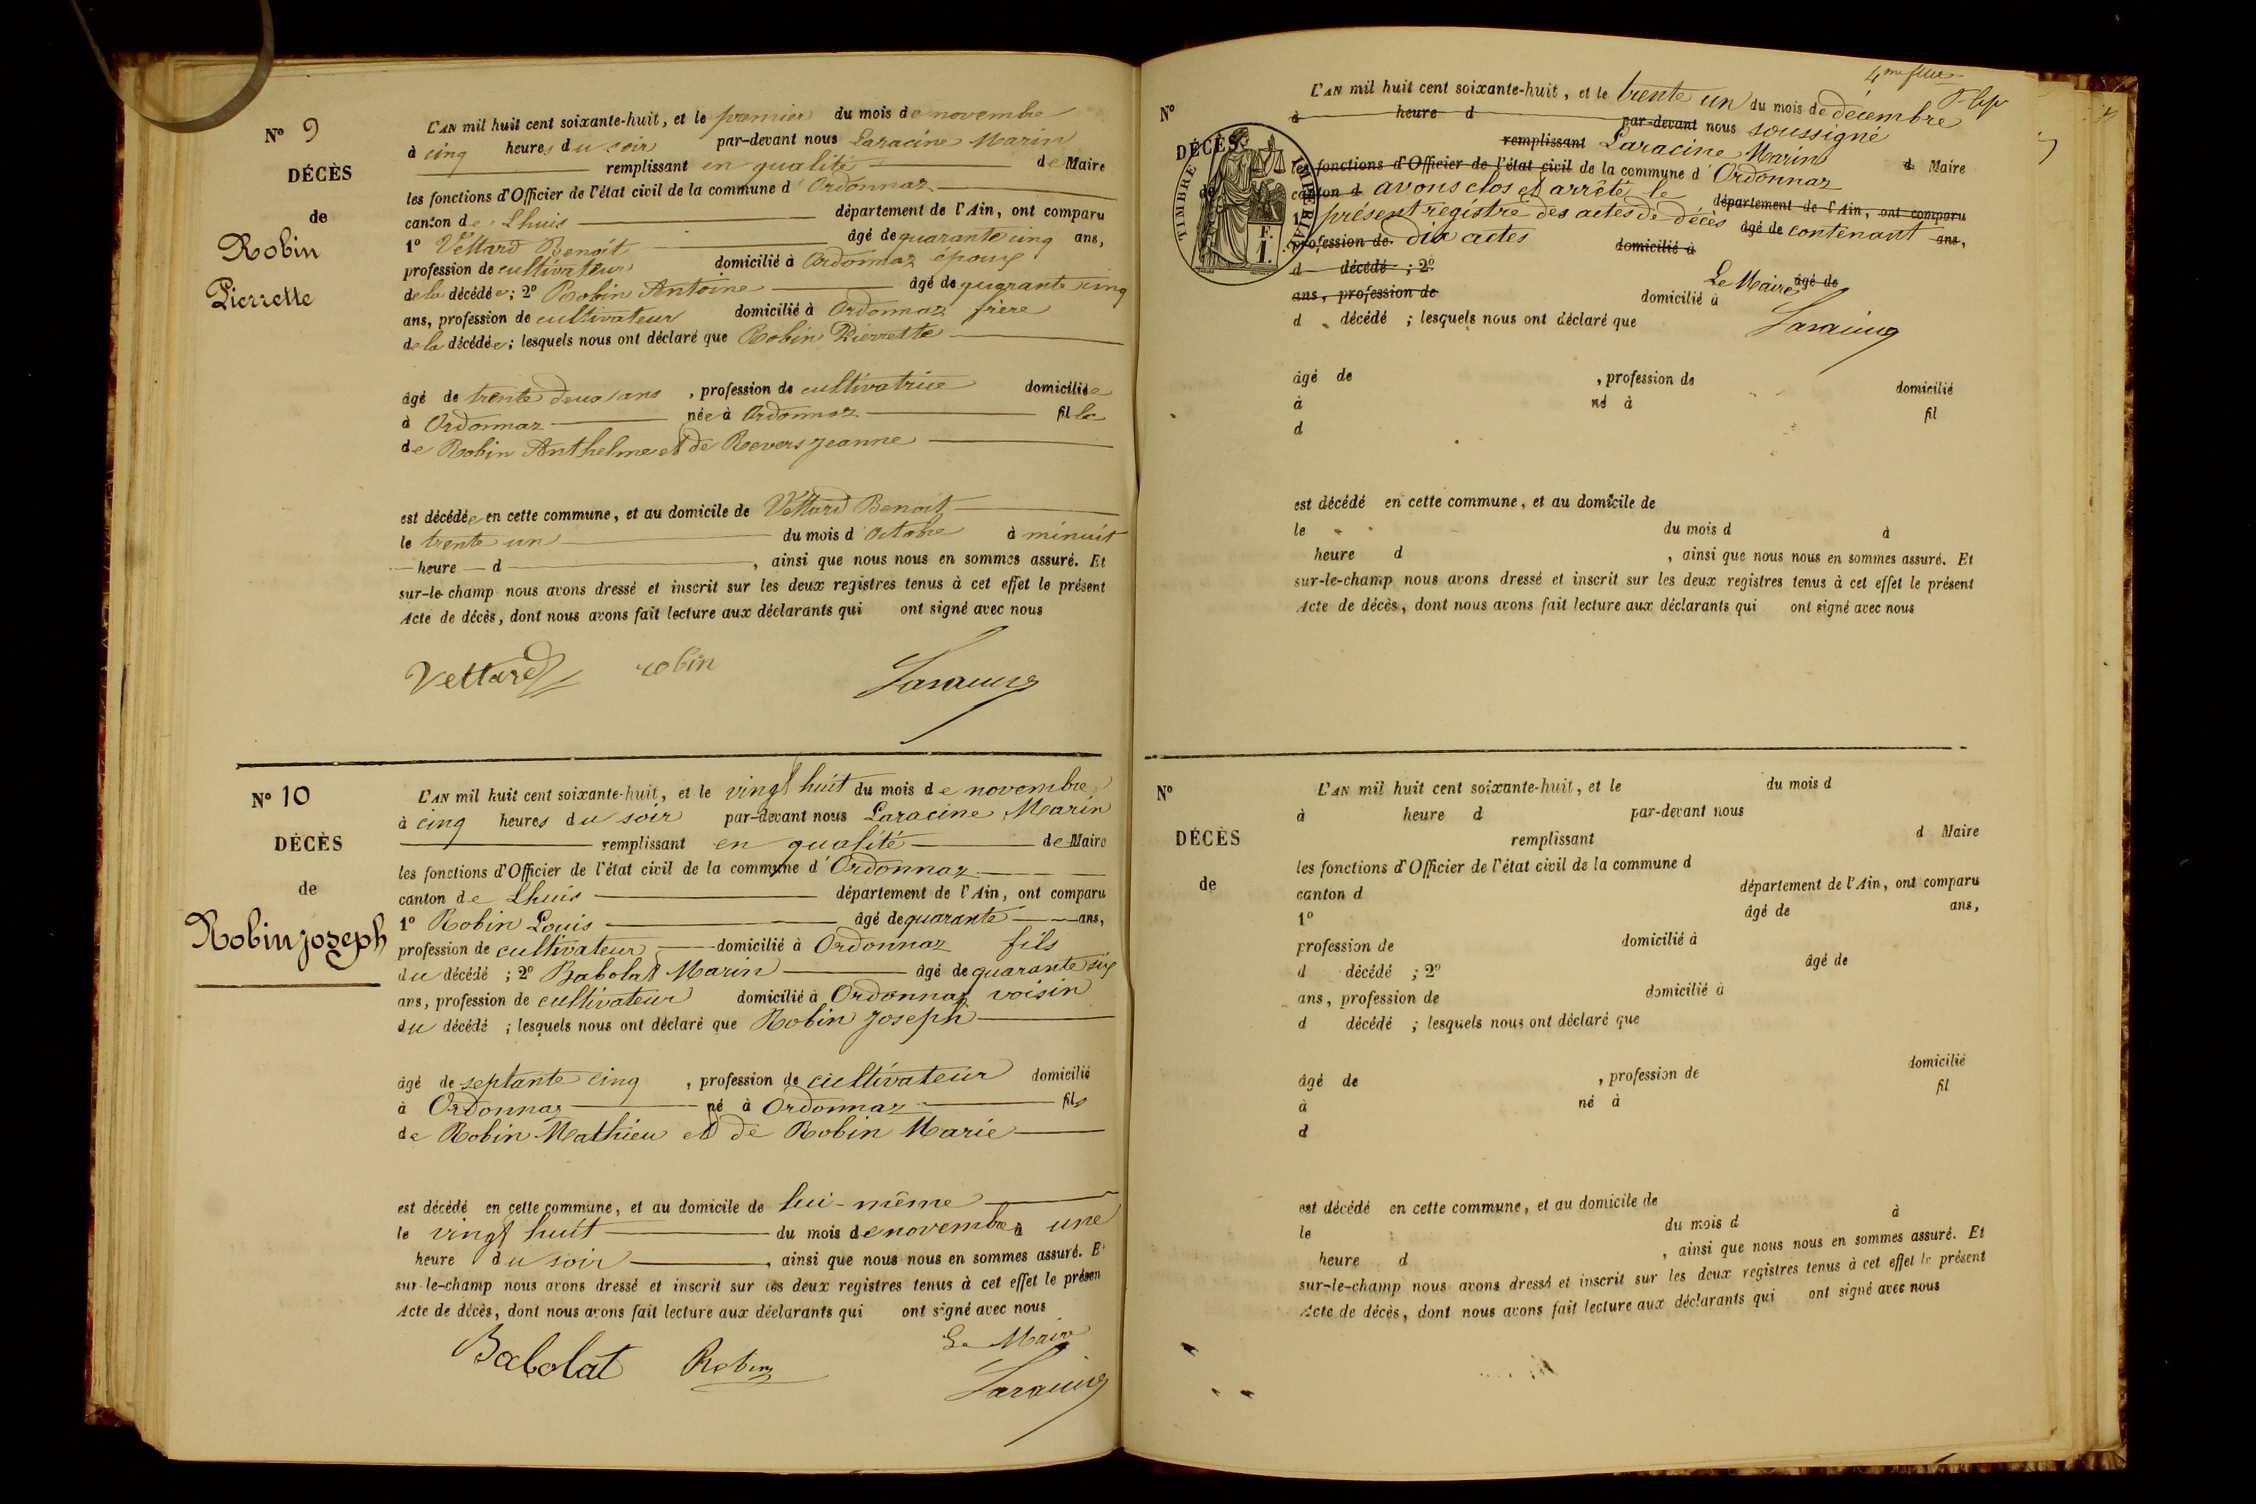 N° 9
DÉCÈS
de
Robin
Pierrette
L'AN mil huit cent soixante-huit, et le premier du mois de novembre
à cinq heures du soir par-devant nous Laracine Marin
remplissant en qualité de Maire
les fonctions d'Officier de l'état civil de la commune d'Ordonnaz
canton de Lhuis département de l'Ain, ont comparu
1° Vettard Benoit âgé de quarante cinq ans,
profession de cultivateur domicilié à Ordonnaz époux
de la décédée; 2° Robin Antoine âgé de quarante cinq
ans, profession de cultivateur domicilié à Ordonnaz frère
de la décédée; lesquels nous ont déclaré que Robin Pierrette
âgé de trente deux ans, profession de cultivatrice domiciliée
à Ordonnaz née à Ordonnaz fille
de Robin Anthelme et de Revers Jeanne
est décédée en cette commune, et au domicile de Vettard Benoit
le trente un du mois d'Octobre à minuit
heure d , ainsi que nous nous en sommes assuré. Et
sur-le-champ nous avons dressé et inscrit sur les deux registres tenus à cet effet le présent
Acte de décès, dont nous avons fait lecture aux déclarants qui ont signé avec nous
Vettard robin Laracine
N° 10
DÉCÈS
de
Robin joseph
L'AN mil huit cent soixante-huit, et le vingt huit du mois de novembre
à cinq heures du soir par-devant nous Laracine Marin
remplissant en qualité de Maire
les fonctions d'Officier de l'état civil de la commune d'Ordonnaz
canton de Lhuis département de l'Ain, ont comparu
1° Robin Louis âgé de quarante ans,
profession de cultivateur domicilié à Ordonnaz fils
du décédé ; 2° Babolat Marin âgé de quarante six
ans, profession de cultivateur domicilié à Ordonnaz voisin
du décédé ; lesquels nous ont déclaré que Robin joseph
âgé de septante cinq , profession de cultivateur domicilié
à Ordonnaz né à Ordonnaz fils
de Robin Mathieu et de Robin Marie
est décédé en cette commune, et au domicile de lui-même
le vingt huit du mois de novembre à une
heure du soir , ainsi que nous nous en sommes assuré. E
sur-le-champ nous avons dressé et inscrit sur les deux registres tenus à cet effet le présen
Acte de décès, dont nous avons fait lecture aux déclarants qui ont signé avec nous
Le Maire
Babolat Robin Laracine
N°
DÉCÈS
de
TIMBRE IMPÉRIAL
1 F.
L'AN mil huit cent soixante-huit, et le trente un du mois de décembre
à heure d par-devant nous soussigné
remplissant Laracine Marin d Maire
les fonctions d'Officier de l'état civil de la commune d'Ordonnaz
canton d avons clos et arrêté le département de l'Ain, ont comparu
1° présent registre des actes de décès âgé de contenant ans,
profession de dix actes domicilié à
d décédé ; 2° Le Maire âgé de
ans, profession de domicilié à
d décédé ; lesquels nous ont déclaré que Laracine
âgé de , profession de domicilié
à né à fil
d
est décédé en cette commune, et au domicile de
le du mois d à
heure d , ainsi que nous nous en sommes assuré. Et
sur-le-champ nous avons dressé et inscrit sur les deux registres tenus à cet effet le présent
Acte de décès, dont nous avons fait lecture aux déclarants qui ont signé avec nous
N°
DÉCÈS
de
L'AN mil huit cent soixante-huit, et le du mois d
à heure d par-devant nous
remplissant d Maire
les fonctions d'Officier de l'état civil de la commune d
canton d département de l'Ain, ont comparu
1° âgé de ans,
profession de domicilié à
d décédé ; 2° âgé de
ans, profession de domicilié à
d décédé ; lesquels nous ont déclaré que
âgé de , profession de domicilié
à né à fil
d
est décédé en cette commune, et au domicile de
le du mois d à
heure d , ainsi que nous nous en sommes assuré. Et
sur-le-champ nous avons dressé et inscrit sur les deux registres tenus à cet effet le présent
Acte de décès, dont nous avons fait lecture aux déclarants qui ont signé avec nous